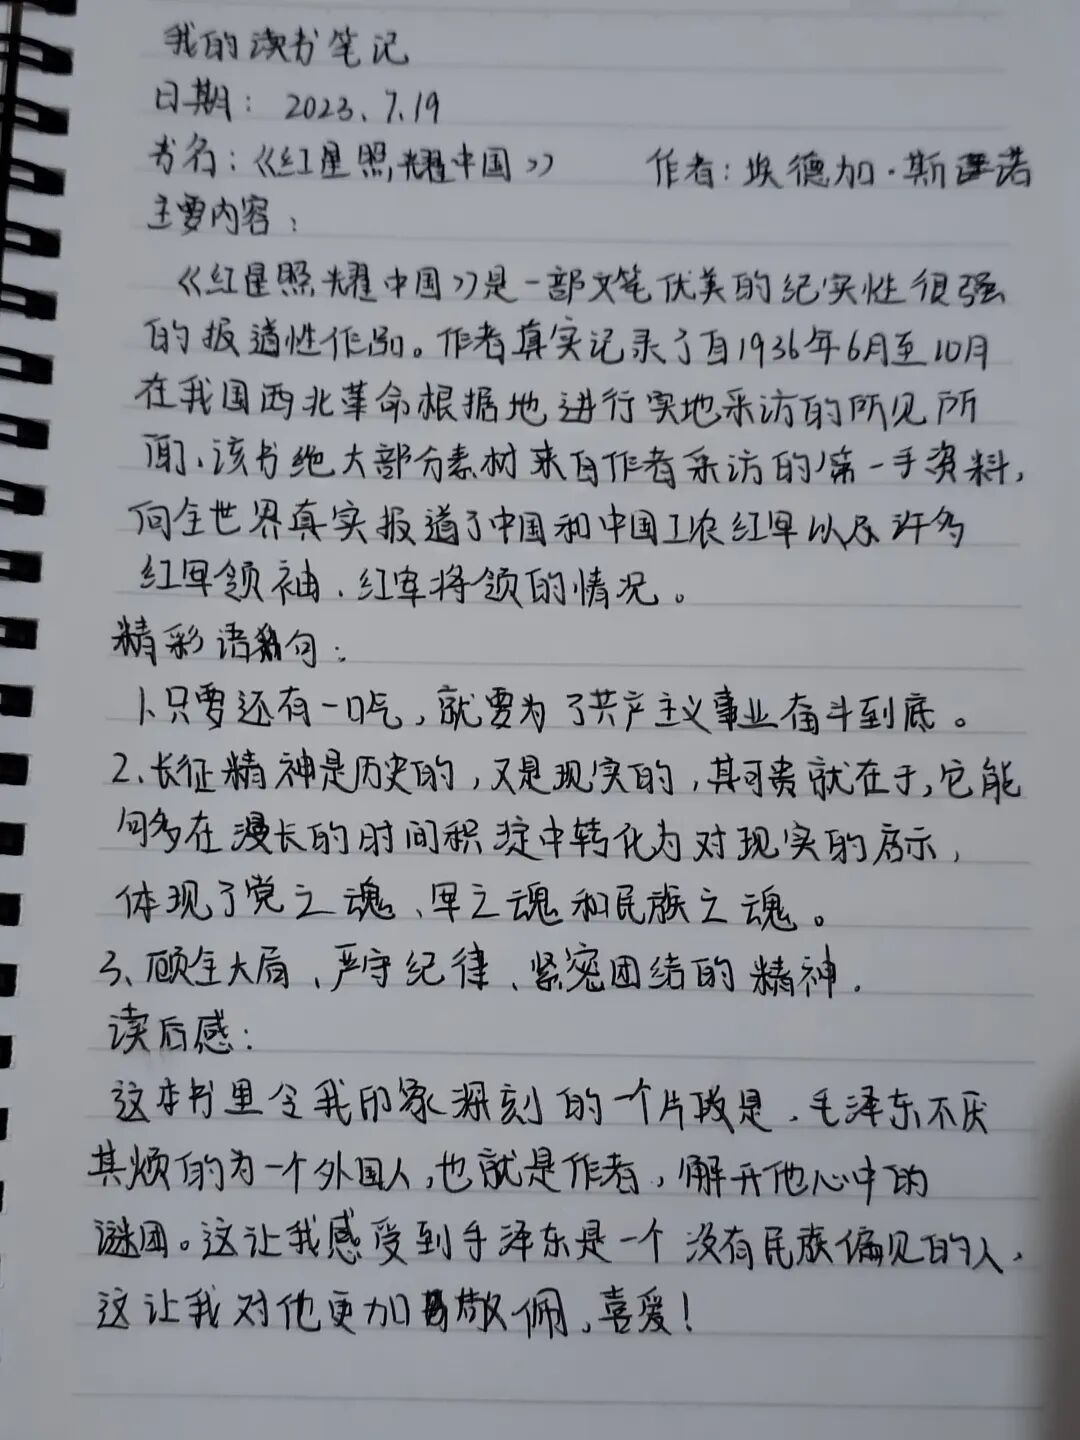 我的读书笔记
日期：2023.7.19
书名：《红星照耀中国》 作者：埃德加·斯诺
主要内容：
《红星照耀中国》是一部文笔优美的纪实性很强
的报道性作品。作者真实记录了自1936年6月至10月
在我国西北革命根据地进行实地采访的所见所
闻、该书绝大部分素材来自作者采访的第一手资料，
向全世界真实报道了中国和中国工农红军以及许多
红军领袖、红军将领的情况。
精彩语句：
1、只要还有一口气，就要为了共产主义事业奋斗到底。
2、长征精神是历史的，又是现实的，其可贵就在于，它能
够在漫长的时间积淀中转化为对现实的启示，
体现了党之魂、军之魂和民族之魂。
3、顾全大局、严守纪律、紧密团结的精神.
读后感：
这本书里令我印象深刻的一个片段是、毛泽东不厌
其烦的为一个外国人，也就是作者，解开他心中的
谜团。这让我感受到毛泽东是一个没有民族偏见的人、
这让我对他更加敬佩，喜爱！